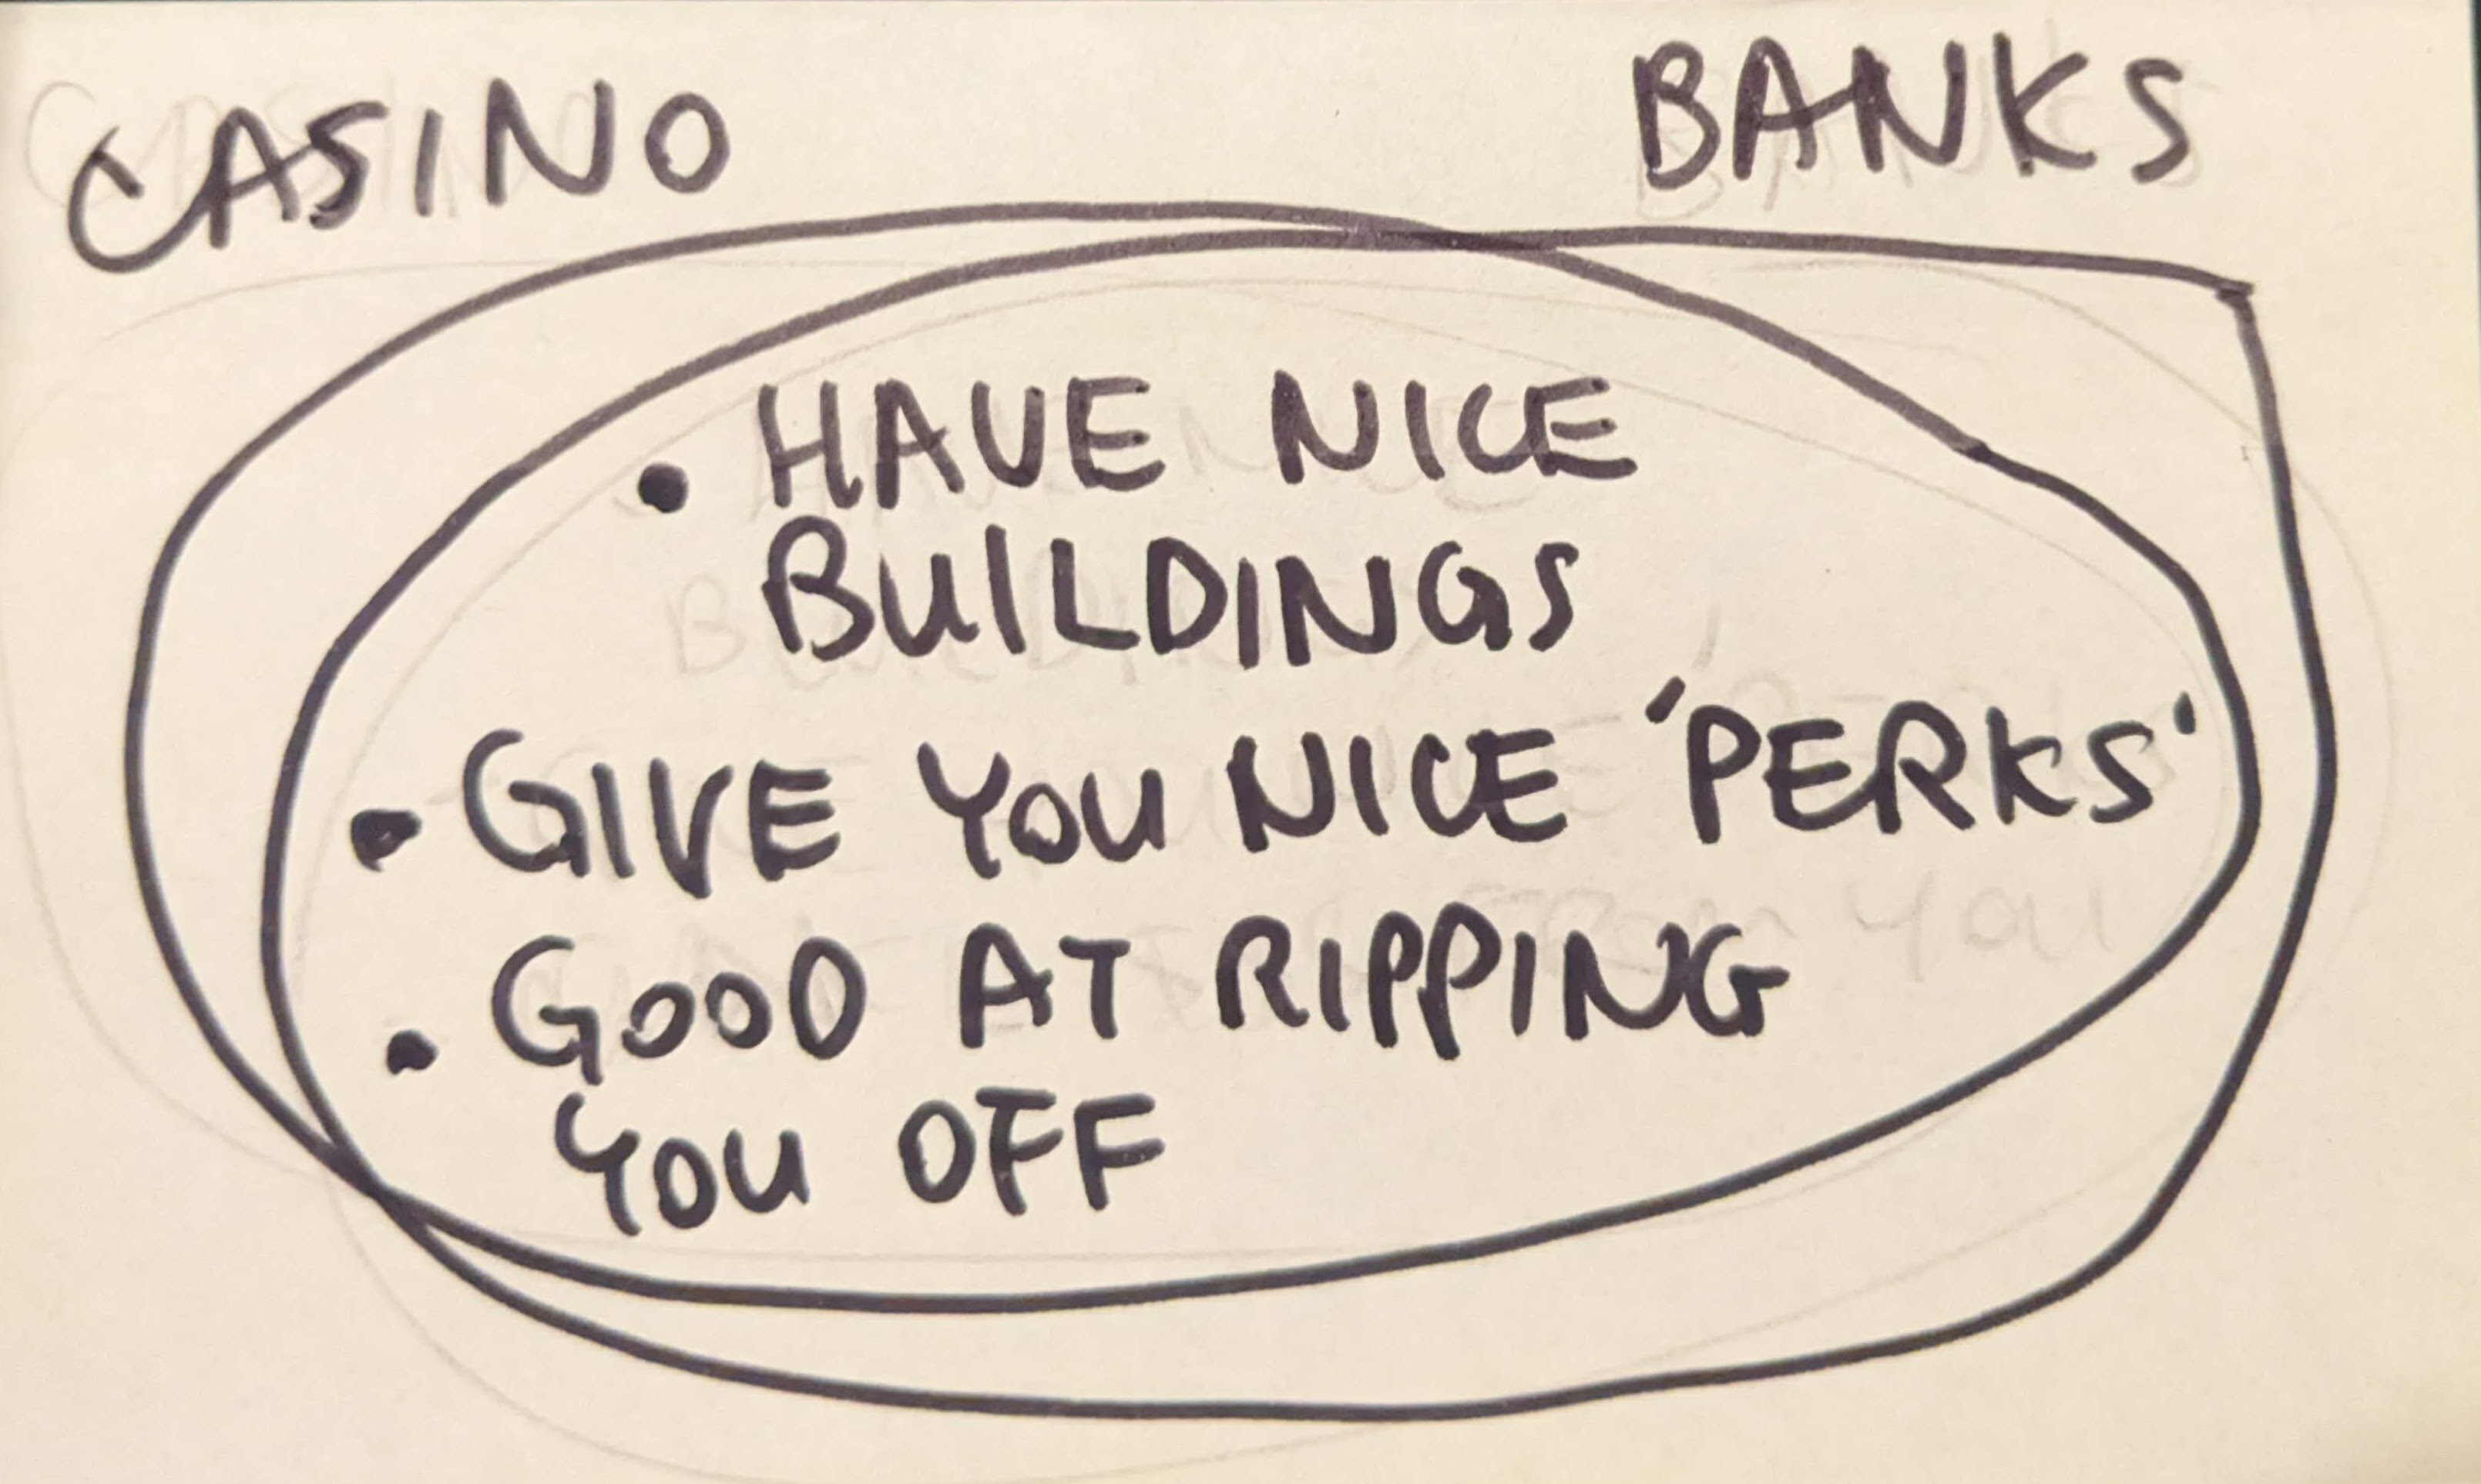 CASINO
BANKS
• HAVE NICE
BUILDINGS
• GIVE YOU NICE 'PERKS'
• GOOD AT RIPPING
YOU OFF